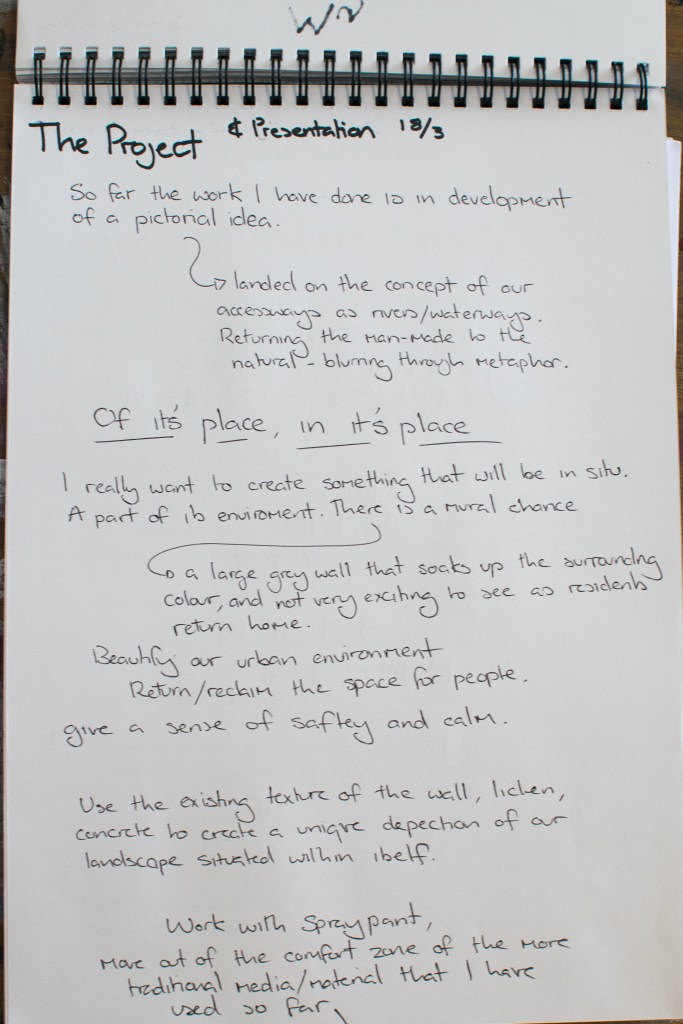 The Project & Presentation 18/3
So far the work I have done is in development
of a pictorial idea.
landed on the concept of our
accessways as rivers/waterways.
Returning the Man-Made to the
natural - blurring through metaphor.
Of it's place, in it's place
I really want to create something that will be in situ.
A part of its enviroment. There is a mural chance
a large grey wall that soaks up the surrounding
colour, and not very exciting to see as residents
return home.
Beautify our urban environment
Return/reclaim the space for people.
give a sense of saftey and calm.
Use the existing texture of the wall, lichen,
concrete to create a unique depection of our
landscape situated within itself.
Work with Spraypant,
Move out of the comfort zone of the more
traditional media/material that I have
used so far